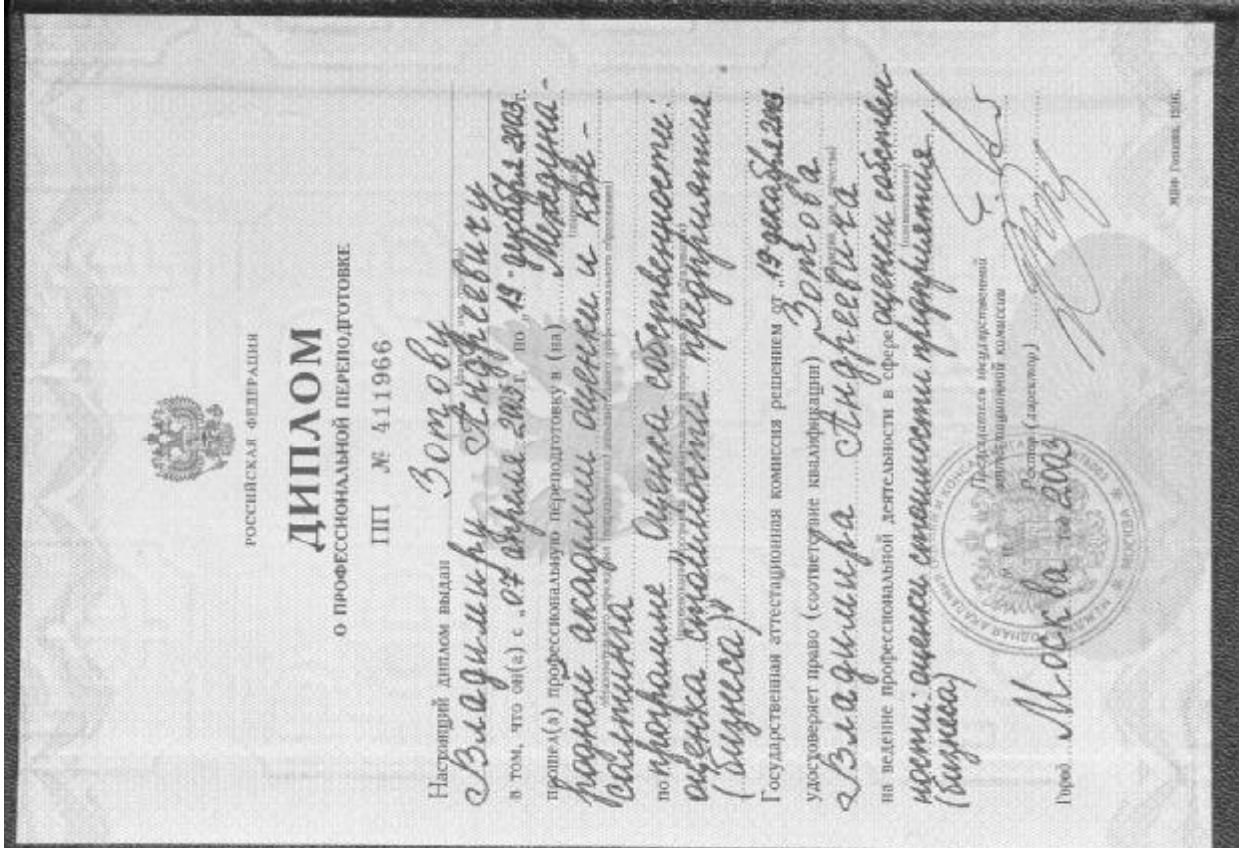 РОССИЙСКАЯ ФЕДЕРАЦИЯ
ДИПЛОМ
О ПРОФЕССИОНАЛЬНОЙ ПЕРЕПОДГОТОВКЕ
ПП № 411966
Настоящий диплом выдан Зотову
Владимиру Андреевичу
(фамилия, имя, отчество)
в том, что он(а) с „07 апреля 2003 г. по „19“ декабря 2003 г.
прошел(а) профессиональную переподготовку в (на) Междуна-
родной академии оценки и кон-
салтинга
по программе Оценка собственности:
оценка стоимости предприятия
(бизнеса)
Государственная аттестационная комиссия решением от „19 декабря 2003
удостоверяет право (соответствие квалификации) Зотова
Владимира Андреевича
(фамилия, имя, отчество)
на ведение профессиональной деятельности в сфере оценки собствен-
ности: оценки стоимости предприятия
(бизнеса)
Председатель государственной
аттестационной комиссии
Ректор (директор)
Город Москва 2003
МОСКВА